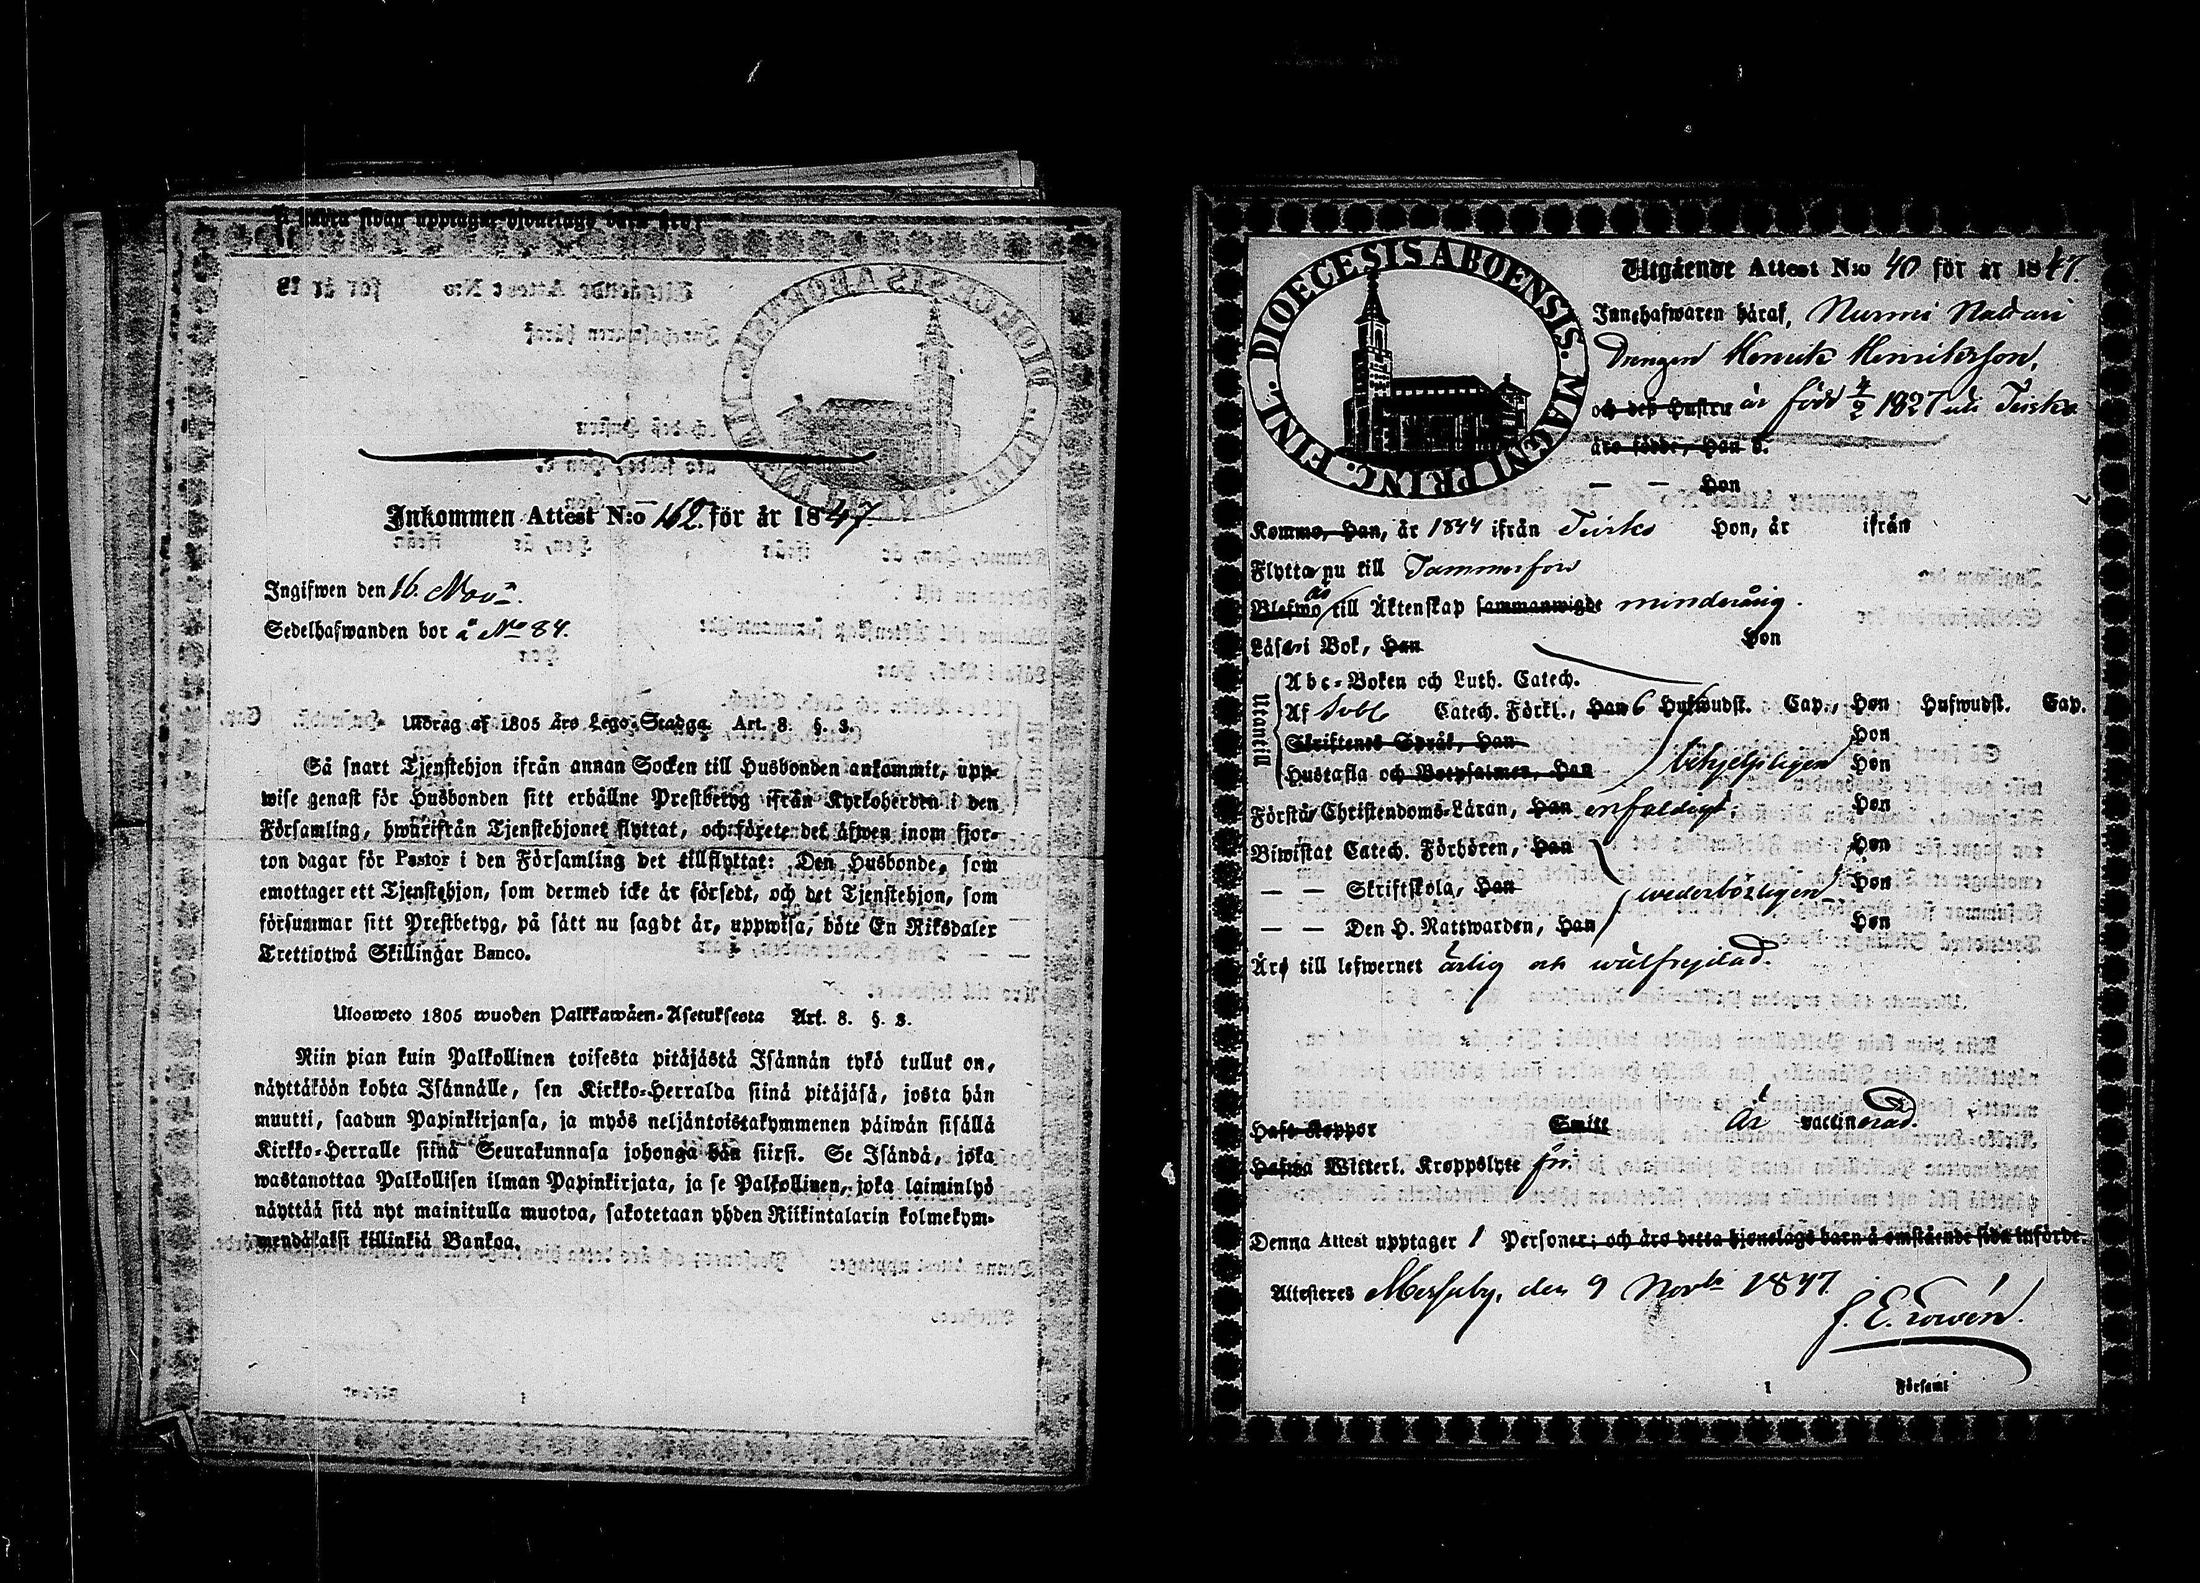 Inkommen Attest N:o 162. för år 1847
Ingifwen den 16. Nov:
Sedelhafwanden bor å No 84.
Utdrag af 1805 års Lego-Stadga Art. 8. §. 3.
Så snart Tjenstehjon ifrån annan Socken till Husbonden ankommit, upp-
wise genast för Husbonden sitt erhållne Prestbetyg ifrån Kyrkoherden i den
Församling, hwarifrån Tjenstehjonet flyttat, och förete det äfwen inom fjor-
ton dagar för Pastor i den Församling det tillflyttat: Den Husbonde, som
emottager ett Tjenstehjon, som dermed icke är försedt, och det Tjenstehjon, som
försummar sitt Prestbetyg, på sätt nu sagdt är, uppwisa, böte En Riksdaler
Trettiotwå Skillingar Banco.
Ulosweto 1805 wuoden Palkkawäen-Asetuksesta Art. 8. §. 3.
Niin pian kuin Palkollinen toisesta pitäjästä Isännän tykö tullut on,
näyttäköön kohta Isännälle, sen Kirkko-Herralda siinä pitäjäsä, josta hän
muutti, saadun Papinkirjansa, ja myös neljäntoistakymmenen päiwän sisällä
Kirkko-Herralle siinä Seurakunnasa johonga hän siirsi. Se Isändä, joka
wastanottaa Palkollisen ilman Papinkirjata, ja se Palkollinen, joka laiminlyö
näyttää sitä nyt mainitulla muotoa, sakotetaan yhden Riikintalarin kolmekym-
mendäkaksi killinkiä Bankoa.
DIOECESIS ABOENSIS. MAGNI PRINC. FINL.
Utgående Attest N:o 40 för år 1847.
Innehafwaren häraf, Nurmi
Drengen Henrik Henriksson,
och deß Hustru är född 4/2 1827 uti
äro födde, Han d.
— — Hon
Kommo, Han, år 1844 ifrån Hon, år ifrån
Flyttar nu till Tammerfors
Blefwo till Äktenskap sammanwigde minderårig.
Läser i Bok, Han Hon
Utantill
Abc-Boken och Luth. Catech.
Af Catech. Förkl., Han 6 Hufwudst. Cap., Hon Hufwudst. Cap.
Skriftenes Språk, Han Hon
Hustafla och Botpsalmen, Han behjelpligen Hon
Förstår Christendoms-Läran, Han enfaldigt, Hon
Biwistat Catech. Förhören, Han Hon
— — Skriftskola, Han wederbörligen Hon
— — Den H. Nattwarden, Han Hon
Äro till lefwernet ärlig och wälfrejdad.
Haft Koppor Smitt Är vaccinerad.
Hafwa Witterl. Kroppslyte fri.
Denna Attest upptager 1 Personer; och äro detta hjonelags barn å omstående sida införde.
Attesteres Messuby, den 9 Novbr 1847.
Församl
1